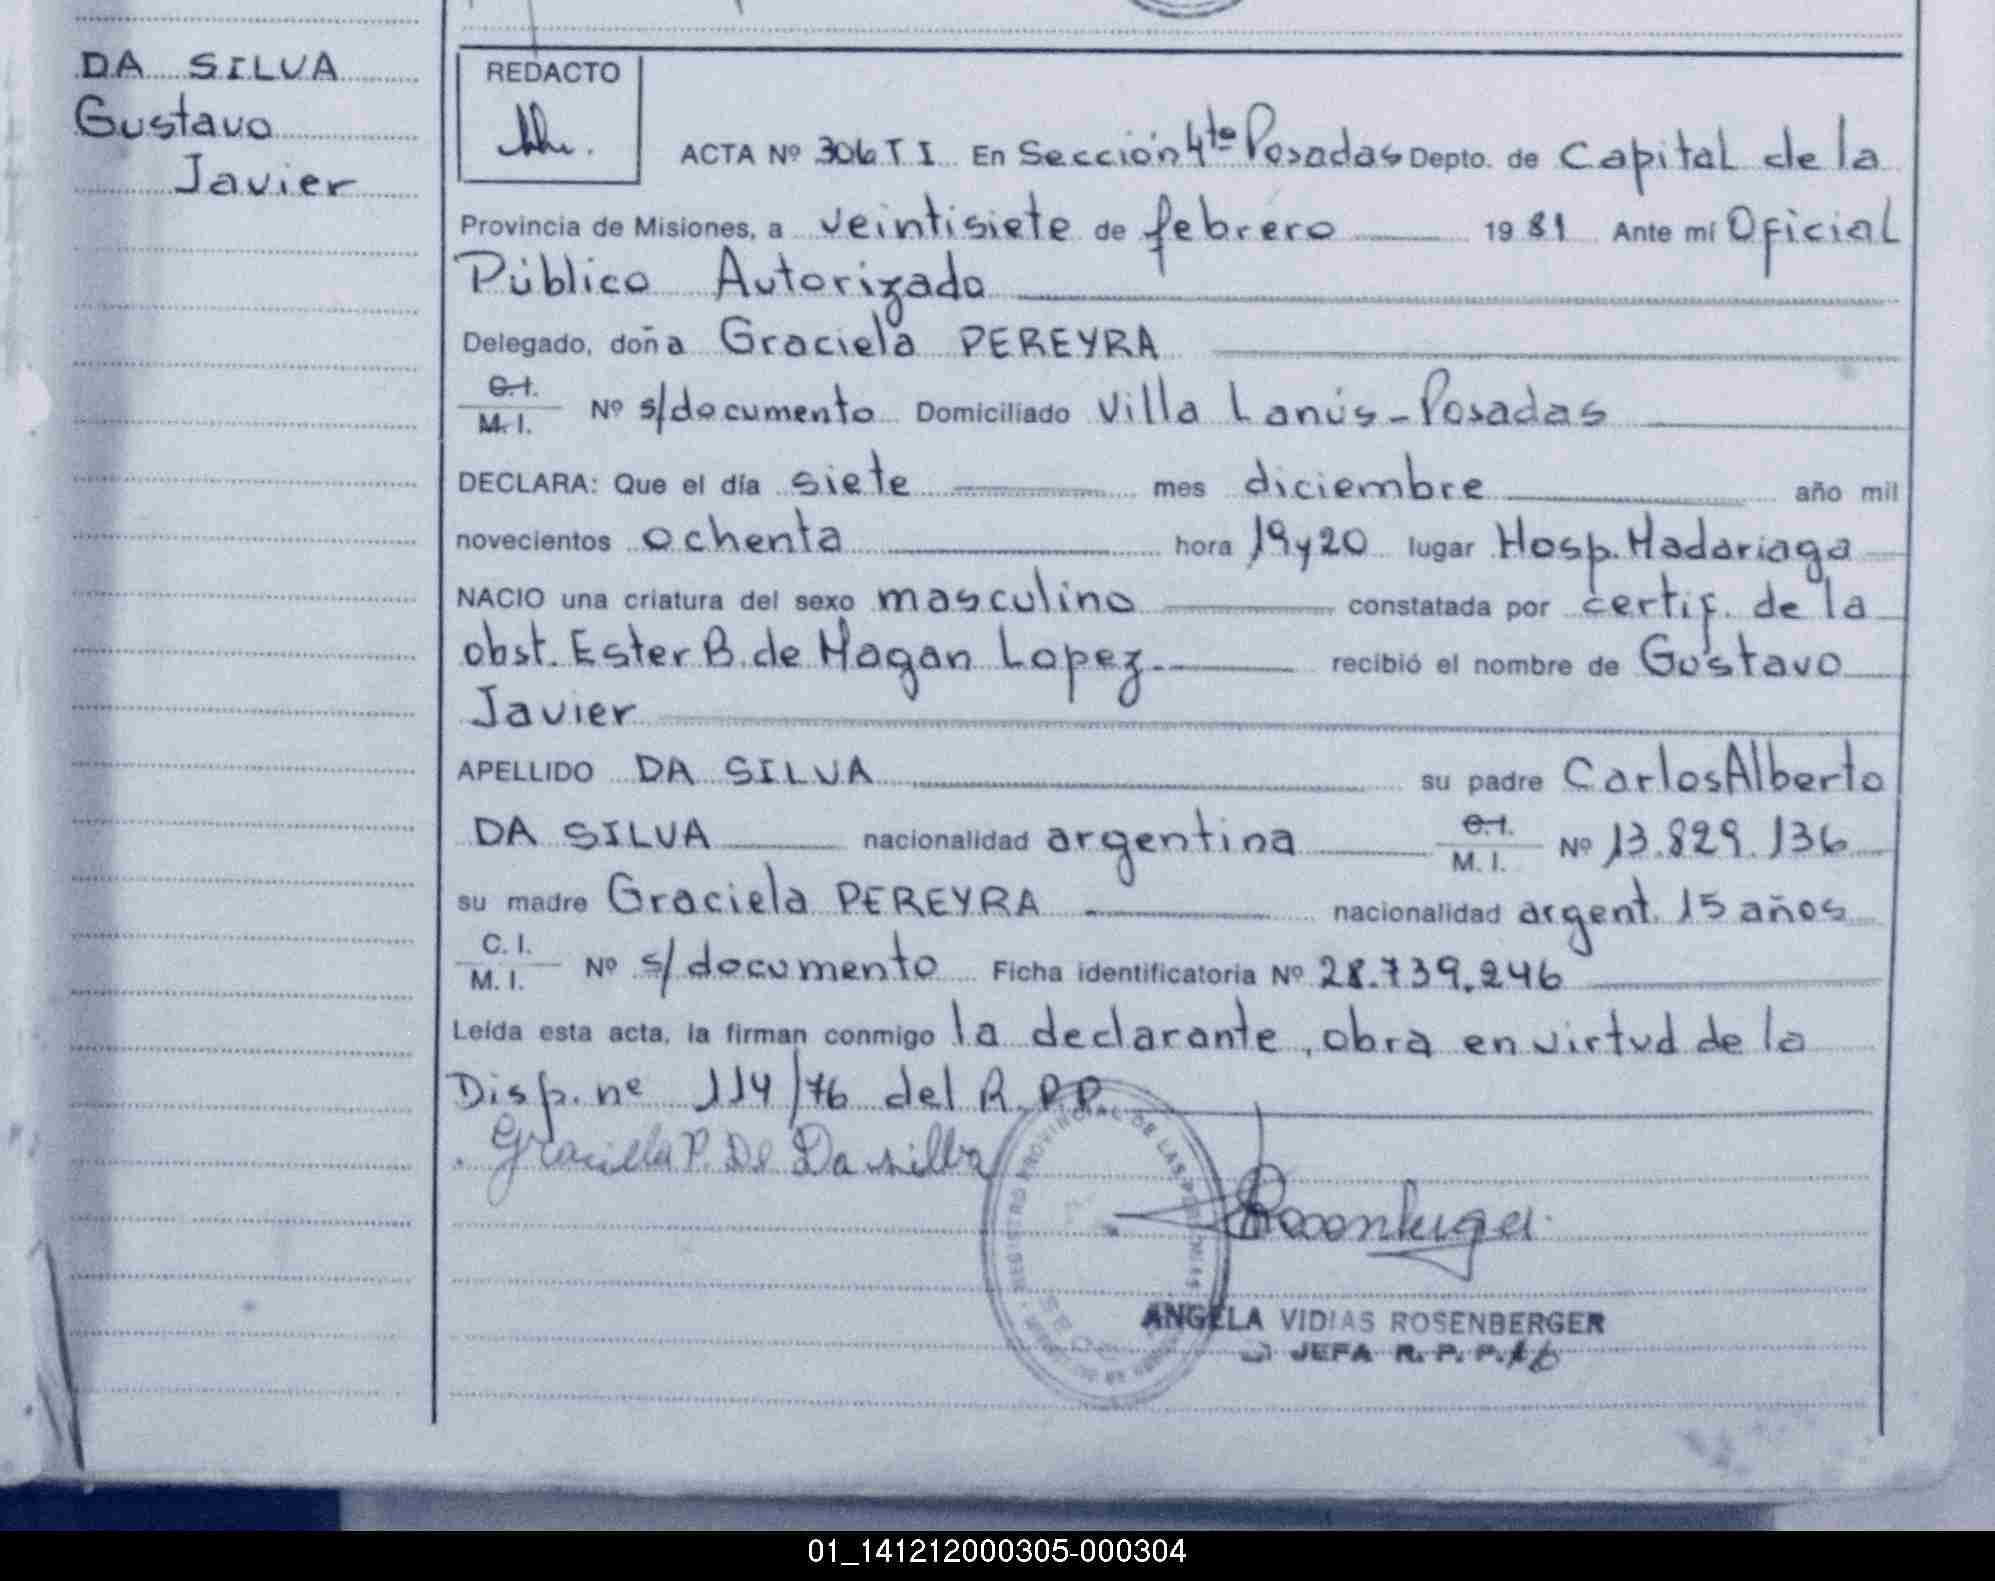 DA SILVA
Gustavo
Javier
REDACTO
ACTA Nº 306 T I En Sección 4ta Posadas Depto. de Capital de la
Provincia de Misiones, a veintisiete de febrero 1981 Ante mí Oficial
Público Autorizado
Delegado, doña Graciela PEREYRA
C.I.
M.I. Nº s/documento Domiciliado Villa Lanús - Posadas
DECLARA: Que el día siete mes diciembre año mil
novecientos ochenta hora 19 y 20 lugar Hosp. Madariaga
NACIO una criatura del sexo masculino constatada por certif. de la
obst. Ester B. de Magan Lopez. recibió el nombre de Gustavo
Javier
APELLIDO DA SILVA su padre Carlos Alberto
DA SILVA nacionalidad argentina C.I.
M.I. Nº 13.829.136
su madre Graciela PEREYRA nacionalidad argent. 15 años
C.I.
M.I. Nº s/documento Ficha identificatoria Nº 28.739.246
Leída esta acta, la firman conmigo la declarante, obra en virtud de la
Disp. nº 114/76 del R.P.P.
Graciela P. De Da
REGISTRO PROVINCIAL DE LAS PERSONAS
ANGELA VIDIAS ROSENBERGER
JEFA R. P. P.
01_141212000305-000304